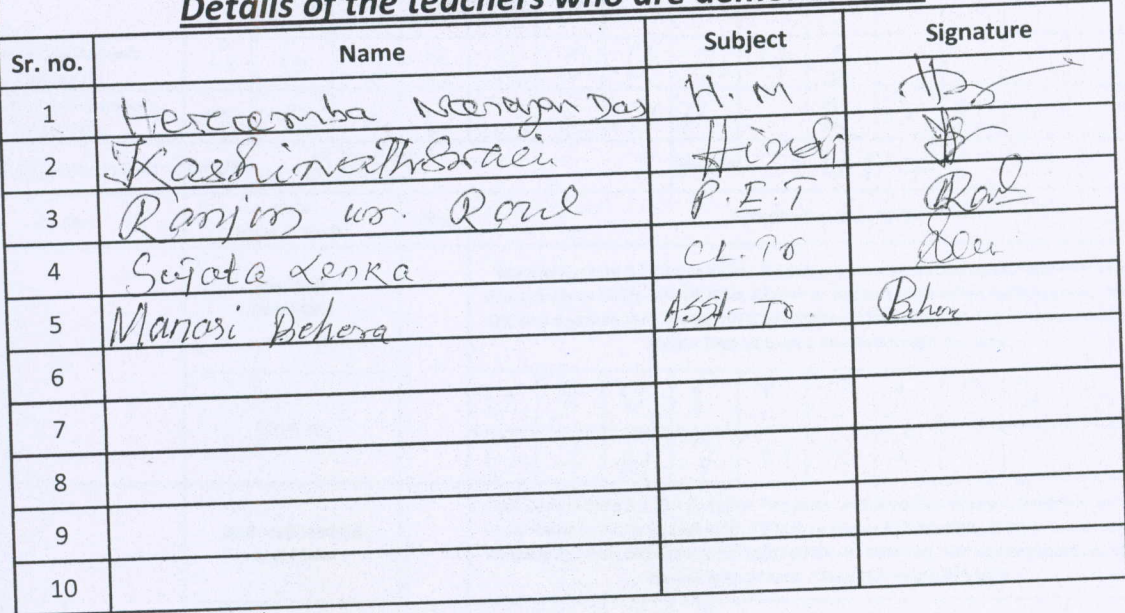 Details of the teachers who are
Sr. no. Name Subject Signature
1 Herecamba Narayan Das H. M
2 Kashinath Hindi
3 Ranjan Kr. Raul P. E. T Raul
4 Sujata Lenka CL. Tr
5 Manasi Behera Asst- Tr. Behera
6
7
8
9
10